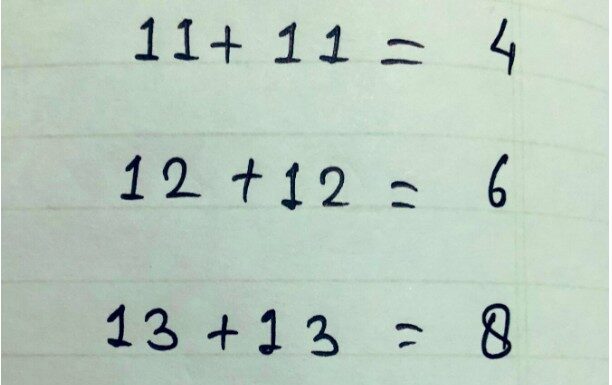 11 + 11 = 4
12 + 12 = 6
13 + 13 = 8